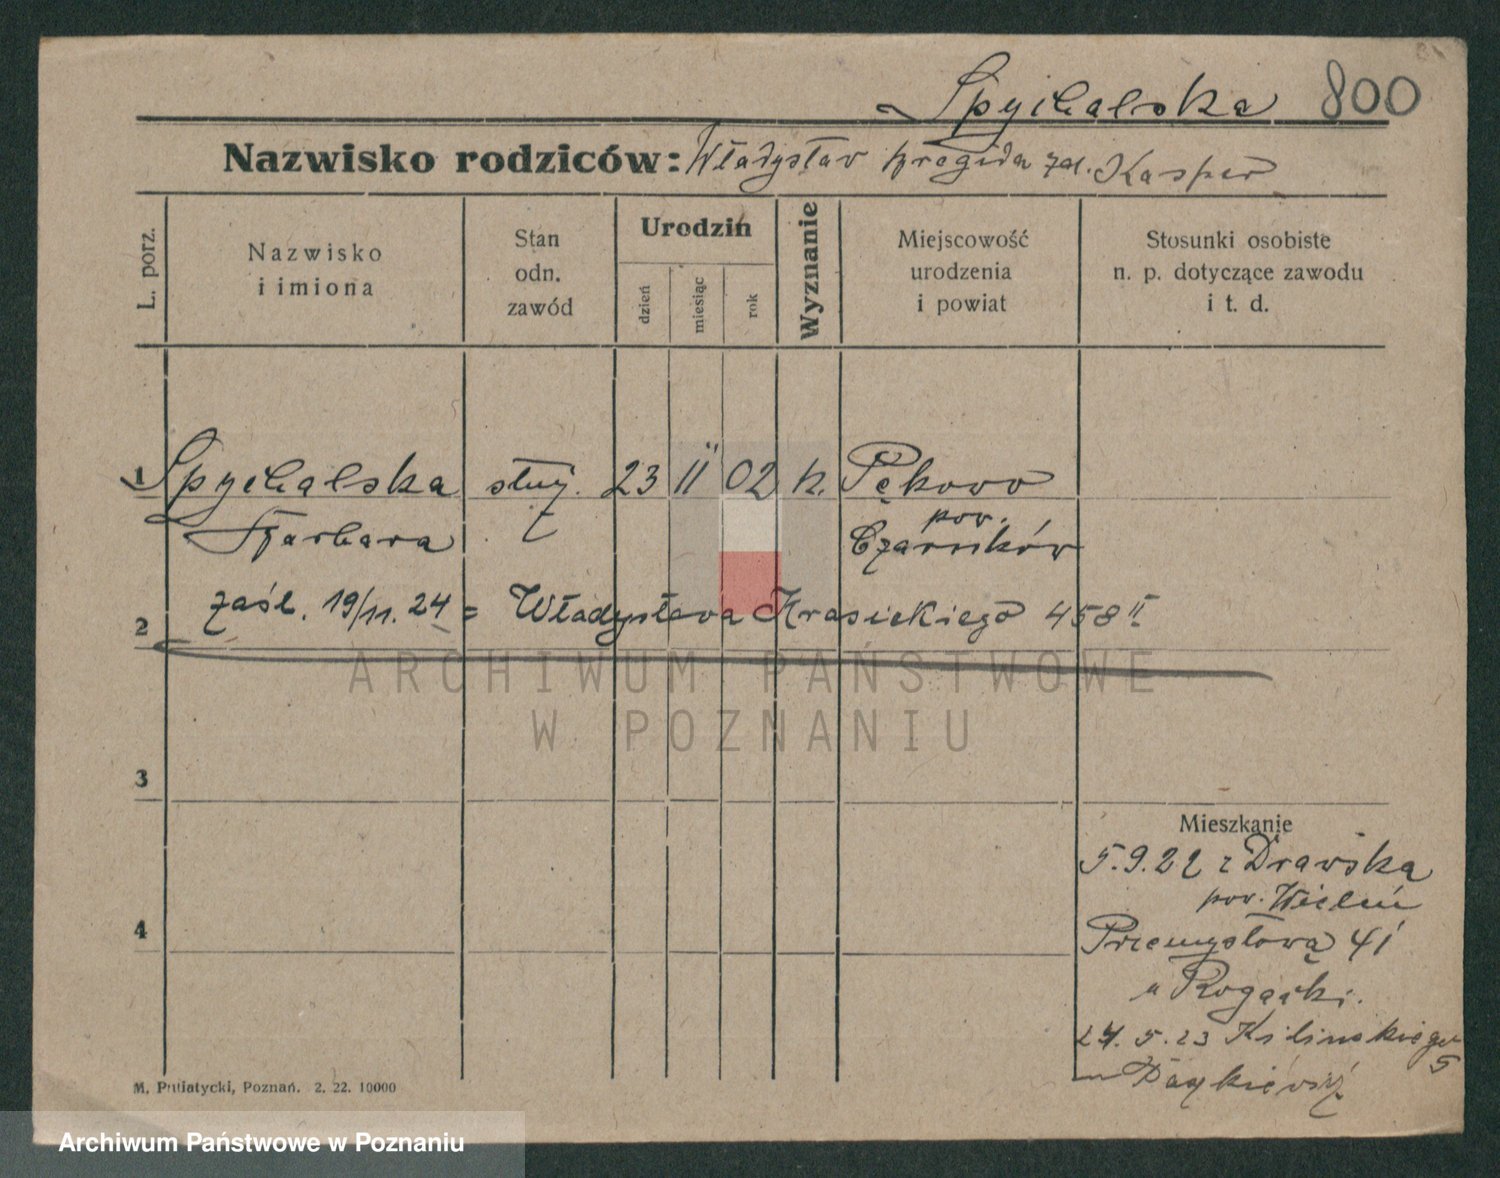 Spychalska 800
Nazwisko rodziców: Władysław Bregida zd. Kasper
L. porz.
Nazwisko
i imiona
Stan
odn.
zawód
Urodzin
dzień
miesiąc
rok
Wyznanie
Miejscowość
urodzenia
i powiat
Stosunki osobiste
n. p. dotyczące zawodu
i t. d.
1 Spychalska służ. 23 II 02 k. Pękowo
Barbara pow. Czarnków
2 zaśl. 19/11. 24 = Władysława Krasickiego 458 II
ARCHIWUM PAŃSTWOWE
W POZNANIU
3
Mieszkanie
5.9.22 z Drawska
pow. Wieleń
4
Przemysłowa 41
u Rogacki.
24. 5. 23 Kilinskiego
5
M. Putiatycki, Poznań. 2. 22. 10000
Archiwum Państwowe w Poznaniu